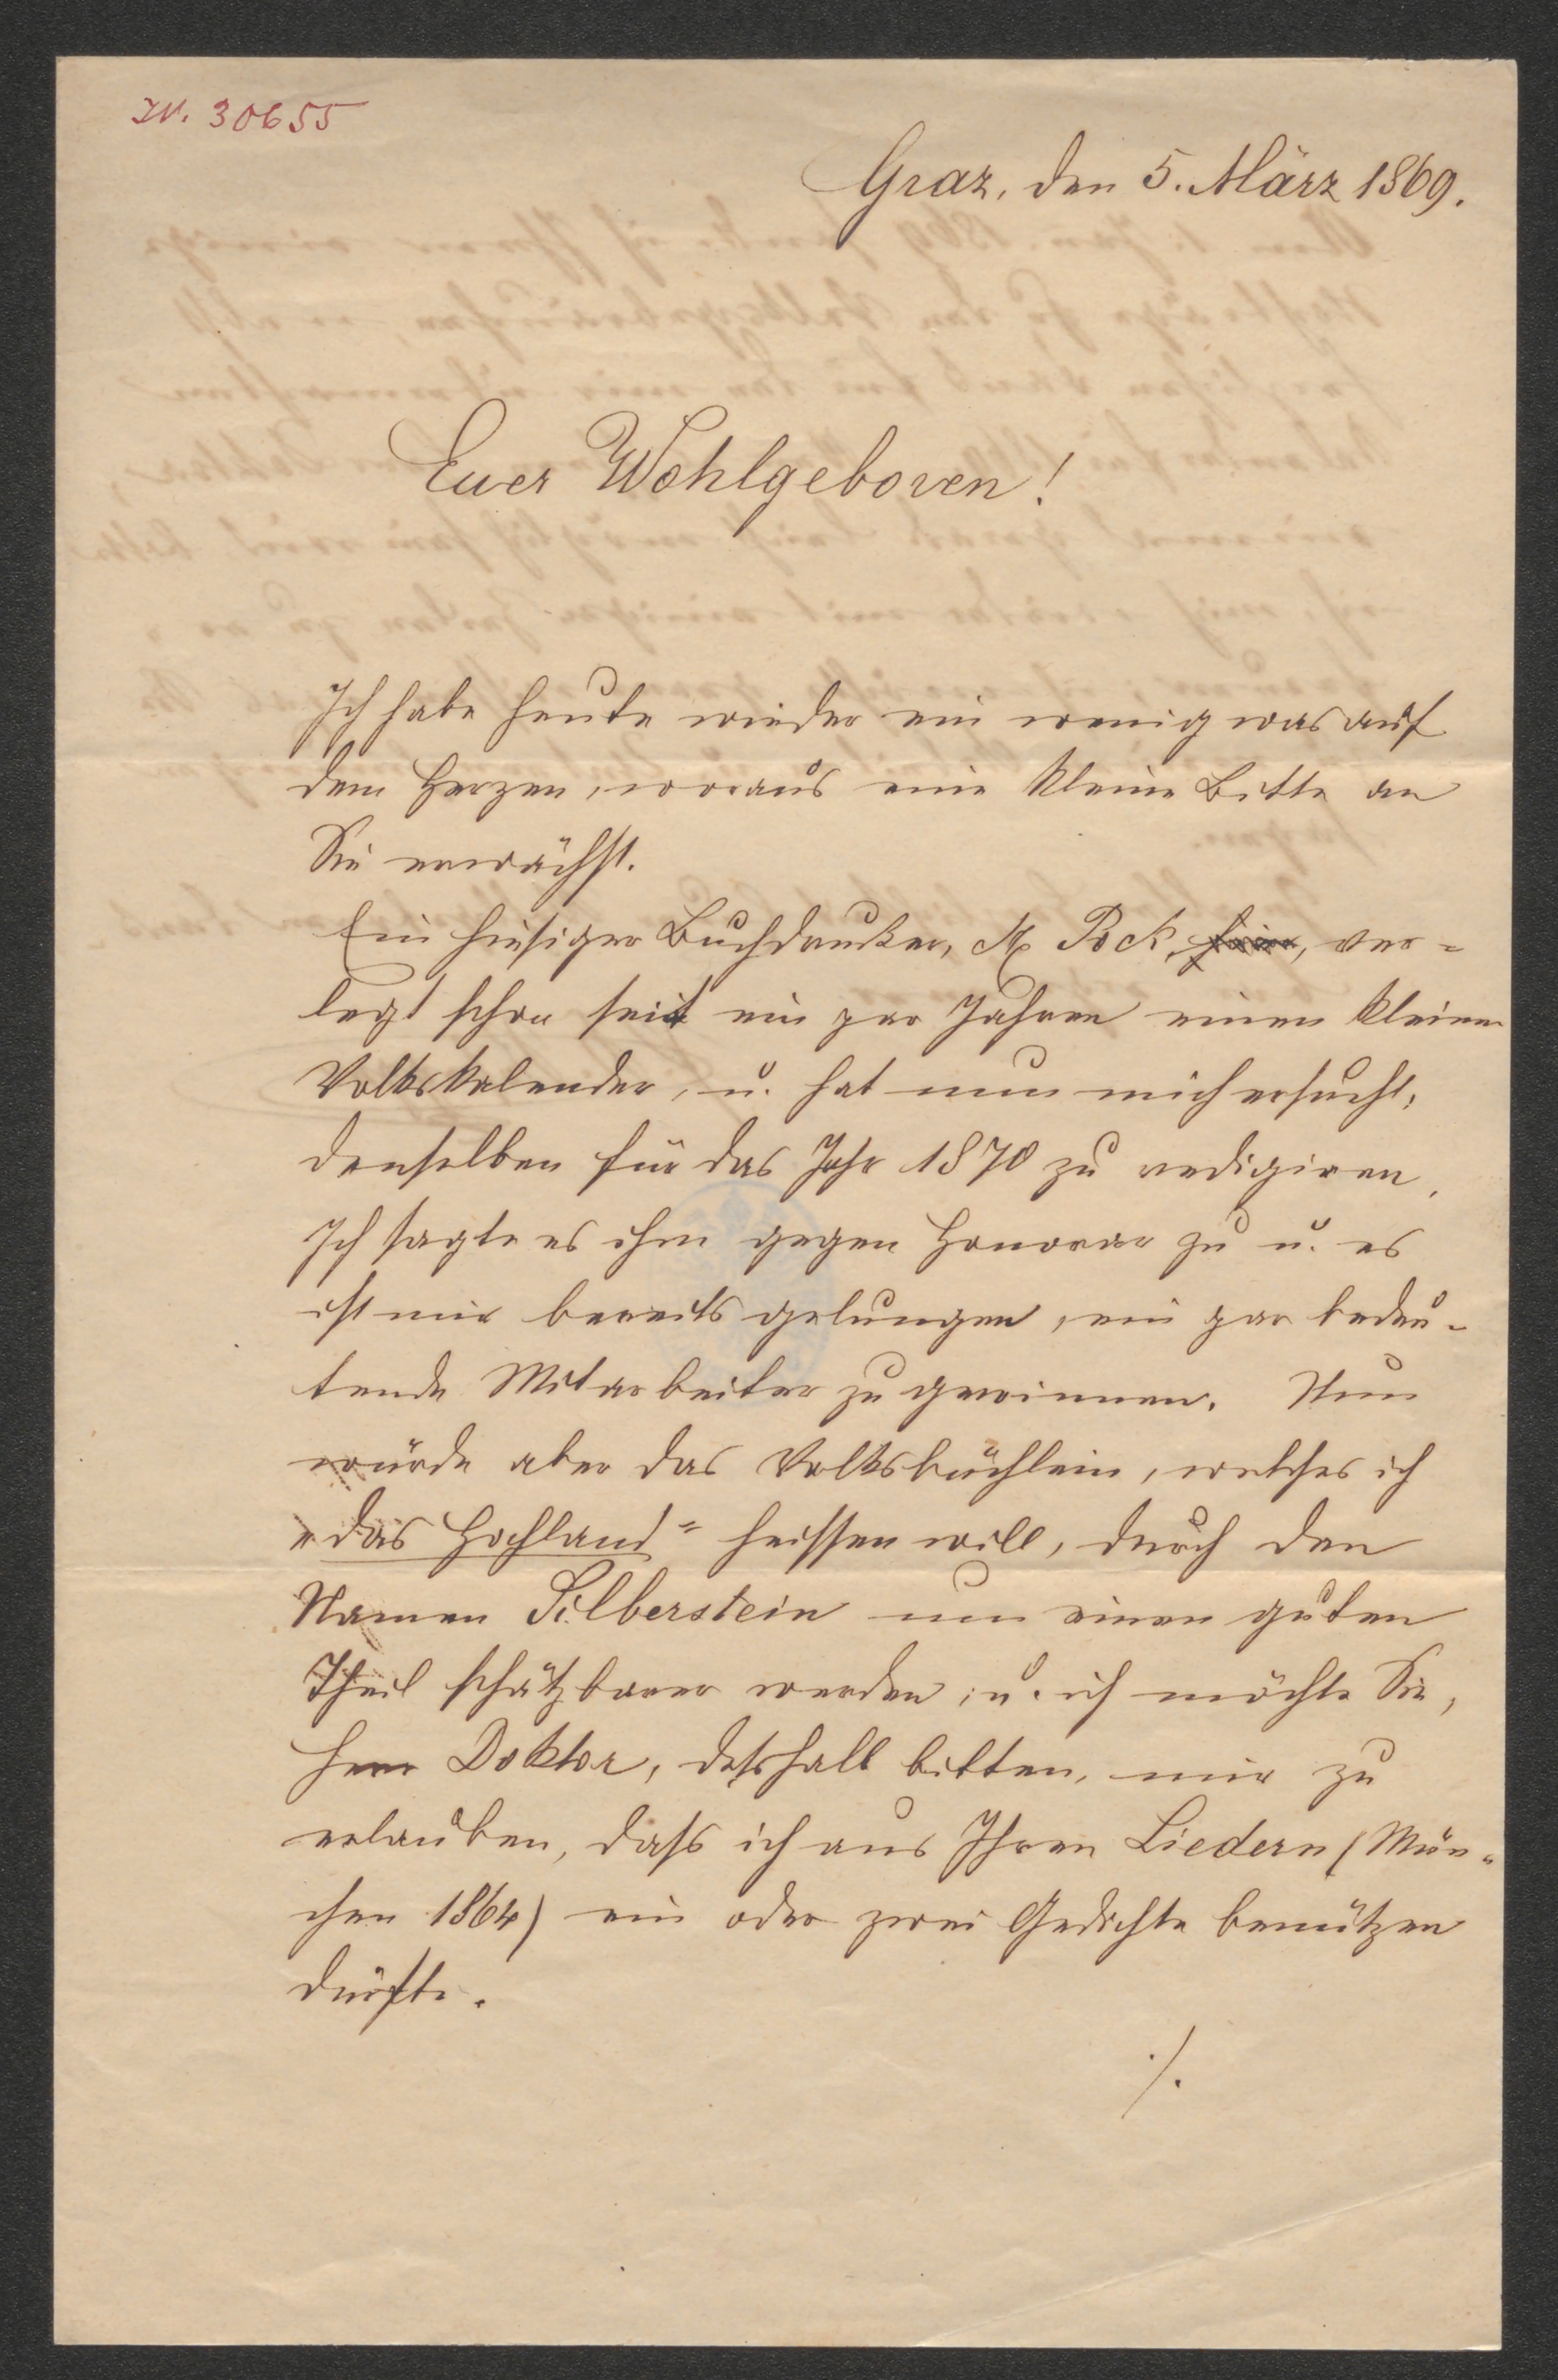 IN. 30655
Graz, den 5. März 1869.
Euer Wohlgeboren!
Ich habe heute wieder ein wenig was auf
dem Herzen, woraus eine kleine Bitte an
Sie erwächst.
Ein hiesiger Buchdrucker, A Pock, ver-
legt schon seit ein par Jahren einen kleinen
Volkskalender, u. hat nun mich ersucht,
denselben für das Jahr 1870 zu redigiren.
Ich sagte es ihm gegen Honorar zu u. es
ist mir bereits gelungen, ein par bedeu-
tende Mitarbeiter zu gewinnen. Nun
würde aber das Volksbüchlein, welches ich
"das Hochland" heissen will, durch den
Namen Silberstein um einen guten
Theil schätzbarer werden, u. ich möchte Sie,
Herr Doktor, desshalb bitten, mir zu
erlauben, dass ich aus Ihren Liedern (Mün-
chen 1864) ein oder zwei Gedichte benützen
dürfte.
./.